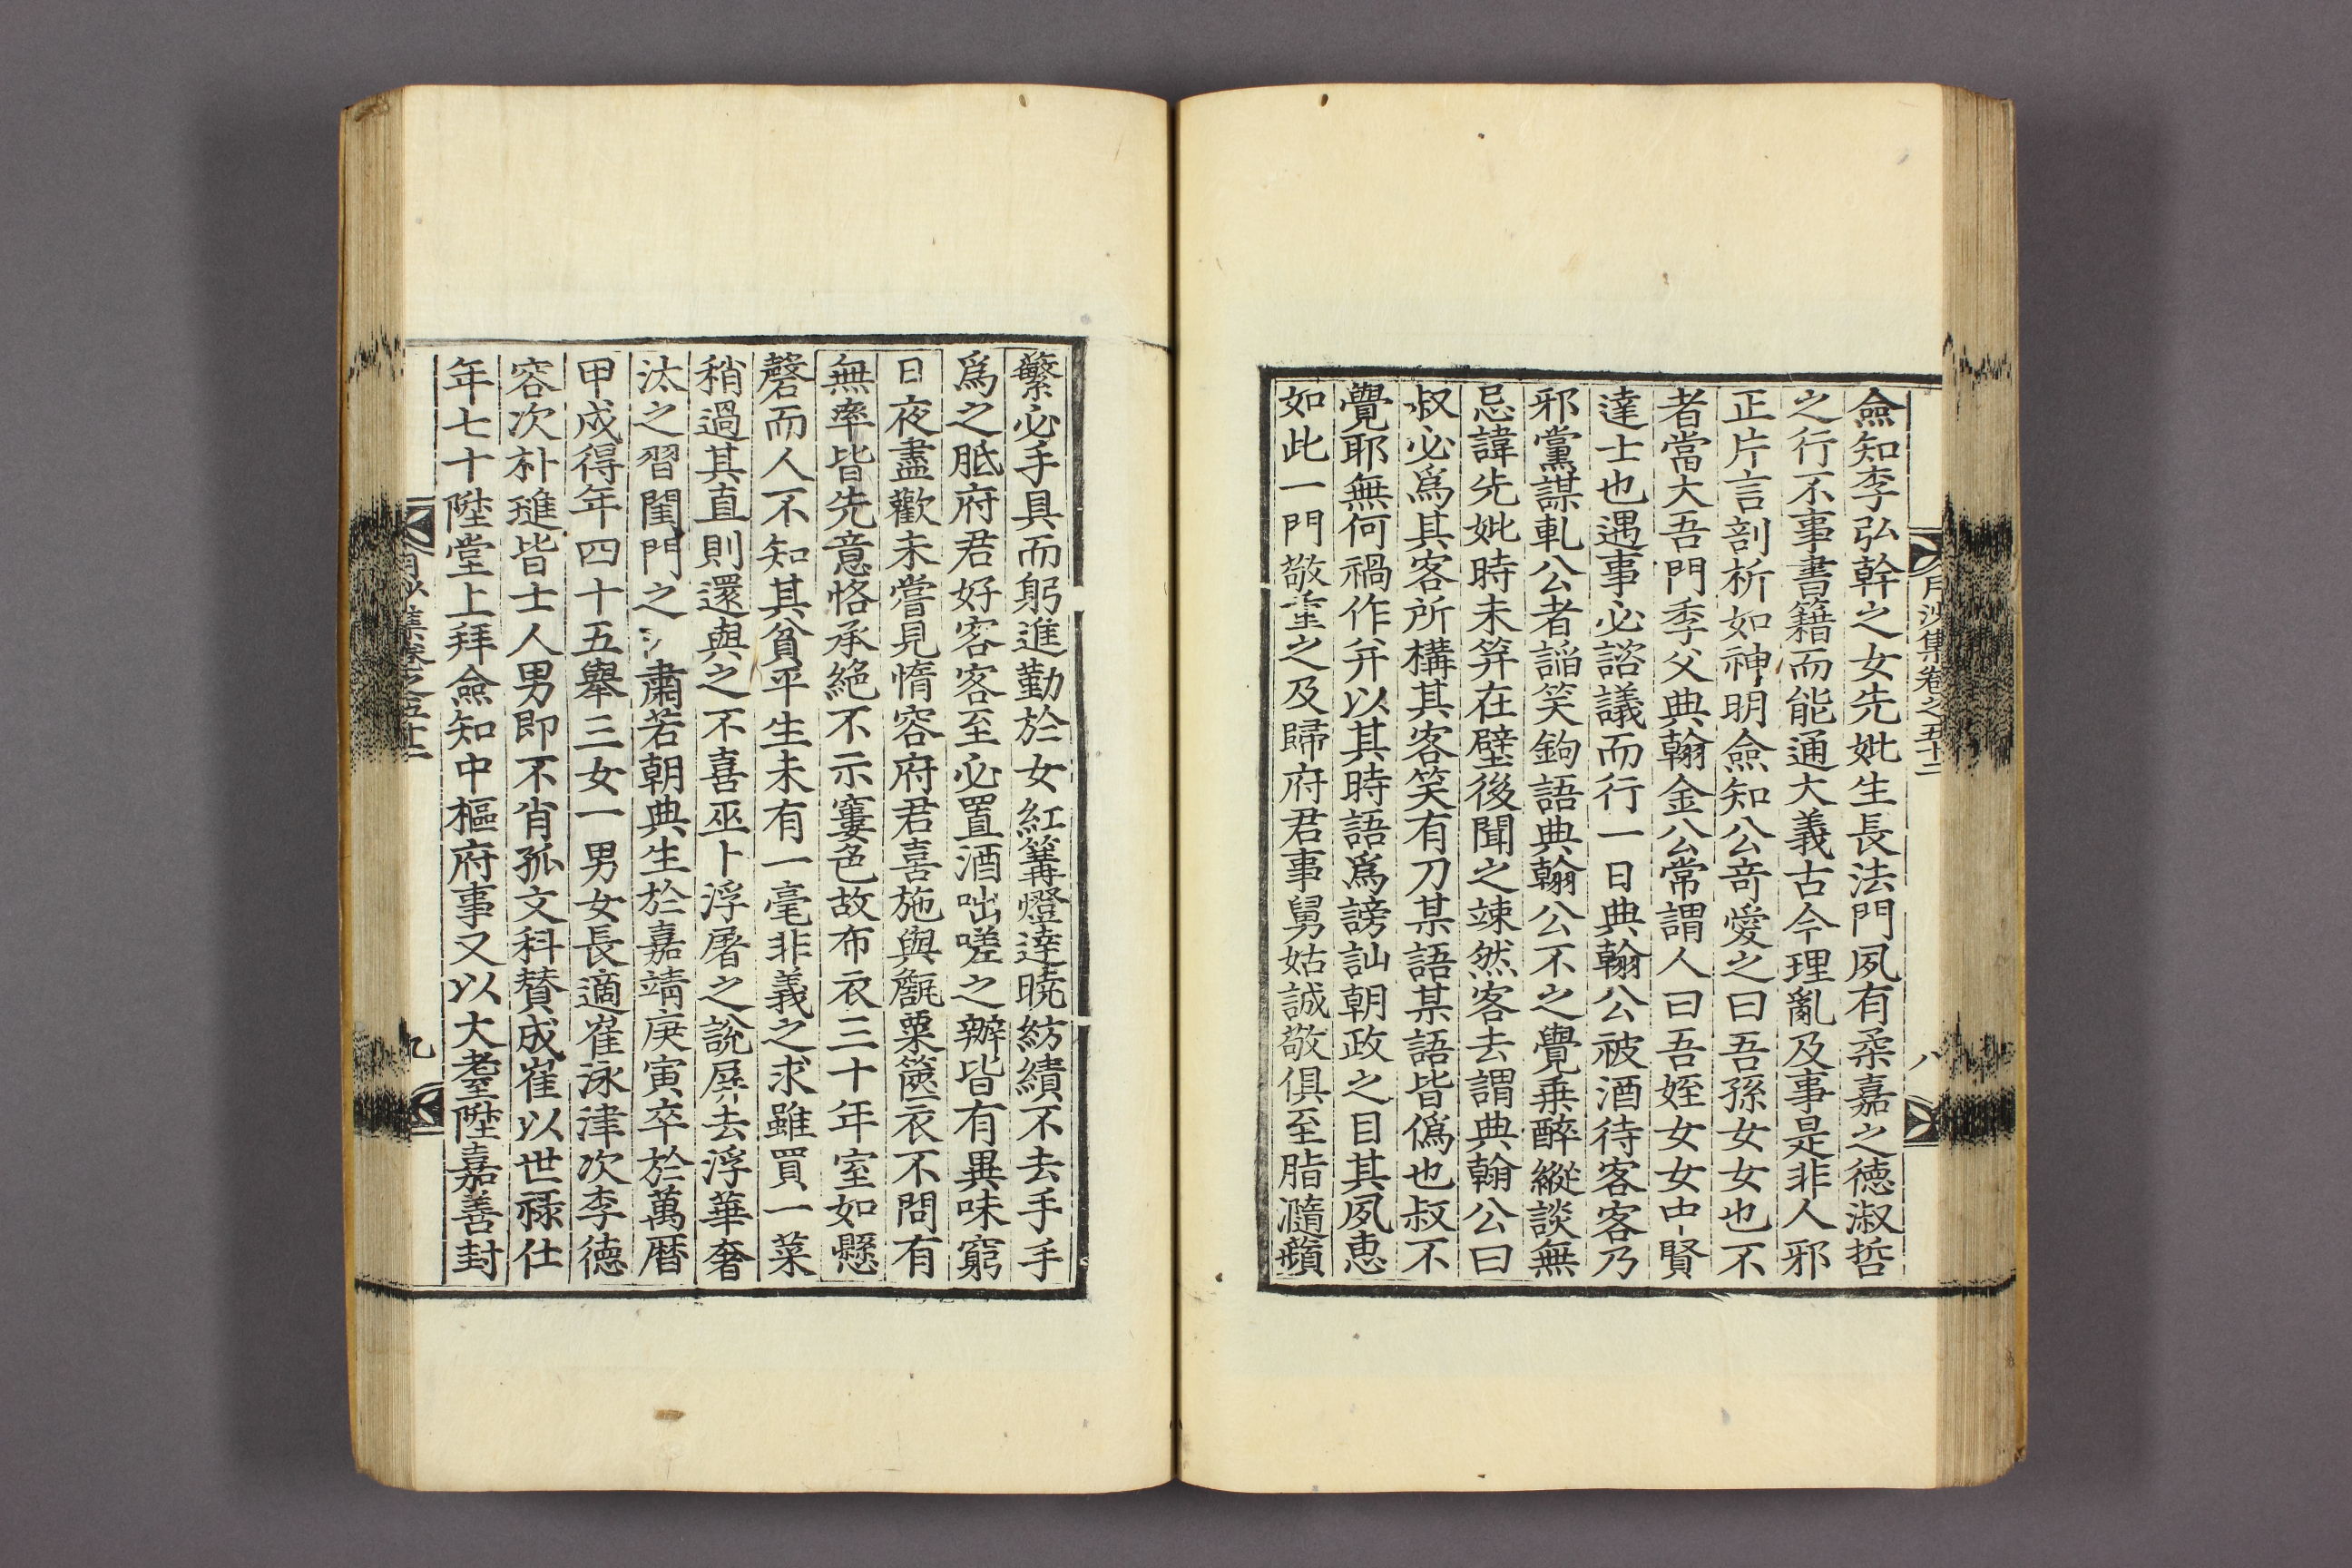 月沙集卷之五十二
八
僉知李弘幹之女先妣生長法門夙有柔嘉之德淑哲
之行不事書籍而能通大義古今理亂及事是非人邪
正片言剖析如神明僉知公奇愛之曰吾孫女女也不
者當大吾門季父典翰金公常謂人曰吾姪女女中賢
達士也遇事必諮議而行一日典翰公被酒待客客乃
邪黨謀軋公者謟笑鉤語典翰公不之覺乘醉縱談無
忌諱先妣時未筓在壁後聞之竦然客去謂典翰公曰
叔必爲其客所構其客笑有刀某語某語皆僞也叔不
覺耶無何禍作幷以其時語爲謗訕朝政之目其夙惠
如此一門敬重之及歸府君事舅姑誠敬俱至脂瀡蘋
蘩必手具而躬進勤於女紅篝燈達曉紡績不去手手
爲之胝府君好客客至必置酒咄嗟之辦皆有異味窮
日夜盡歡未嘗見惰容府君喜施與甁粟篋衣不問有
無率皆先意恪承絶不示窶色故布衣三十年室如懸
磬而人不知其貧平生未有一毫非義之求雖買一菜
稍過其直則還與之不喜巫卜浮屠之說屛去浮華奢
汰之習閨門之氵肅若朝典生於嘉靖庚寅卒於萬曆
甲戌得年四十五擧三女一男女長適崔泳津次李德
容次朴璡皆士人男卽不肖孤文科贊成崔以世祿仕
年七十陞堂上拜僉知中樞府事又以大耋陞嘉善封
月沙集卷之五十二
九